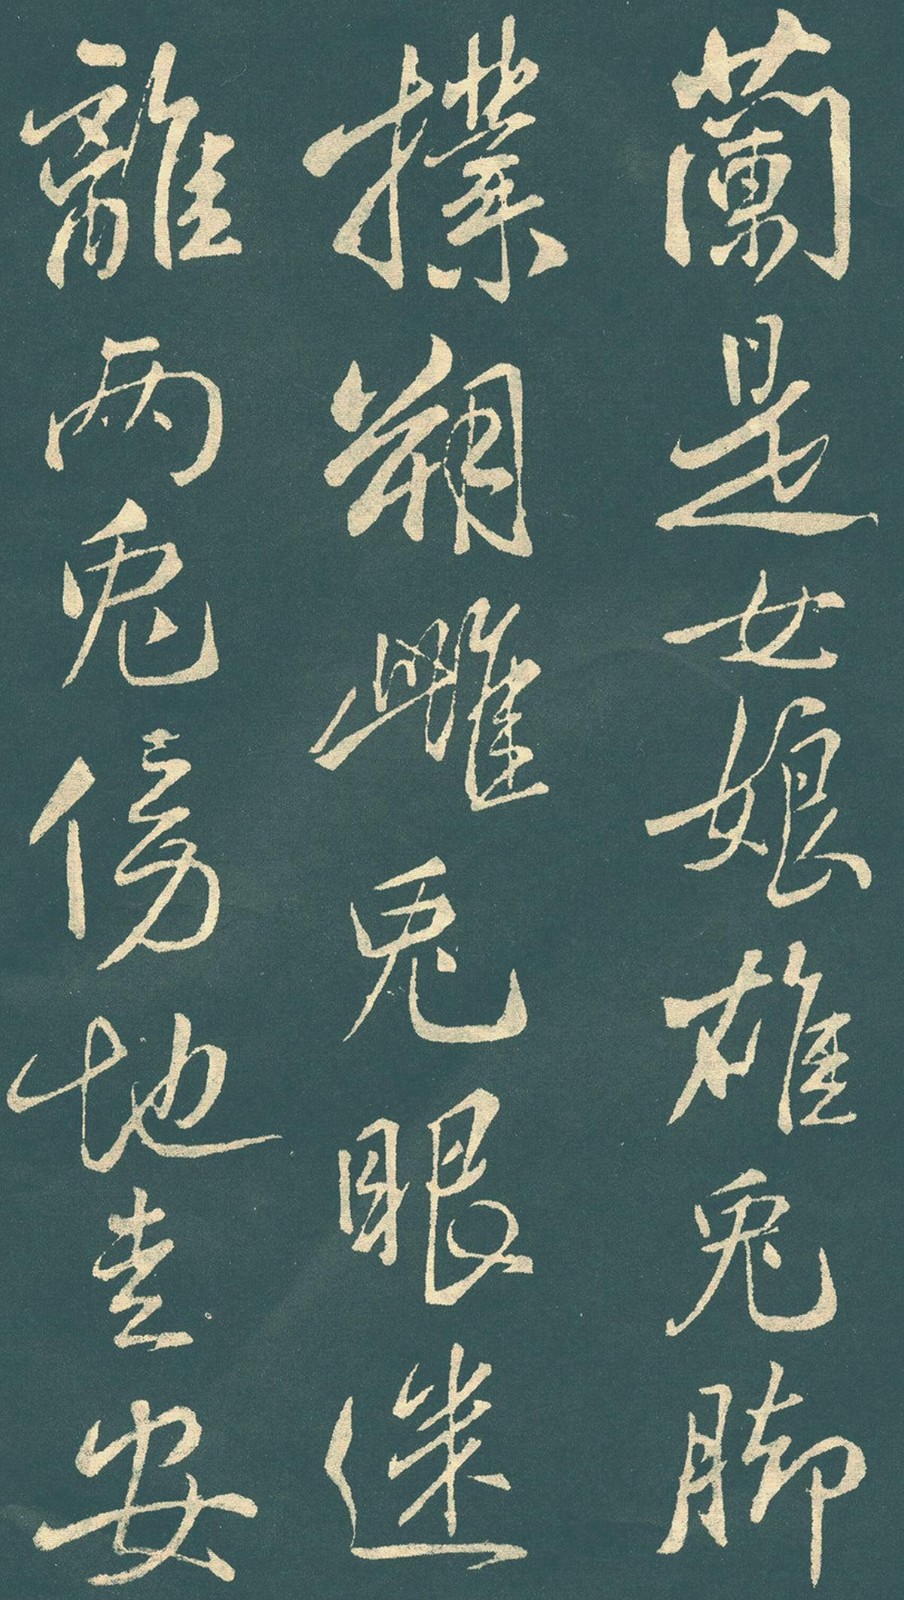 蘭是女娘雄兔脚
撲朔雌兔眼迷
離兩兔傍地走安